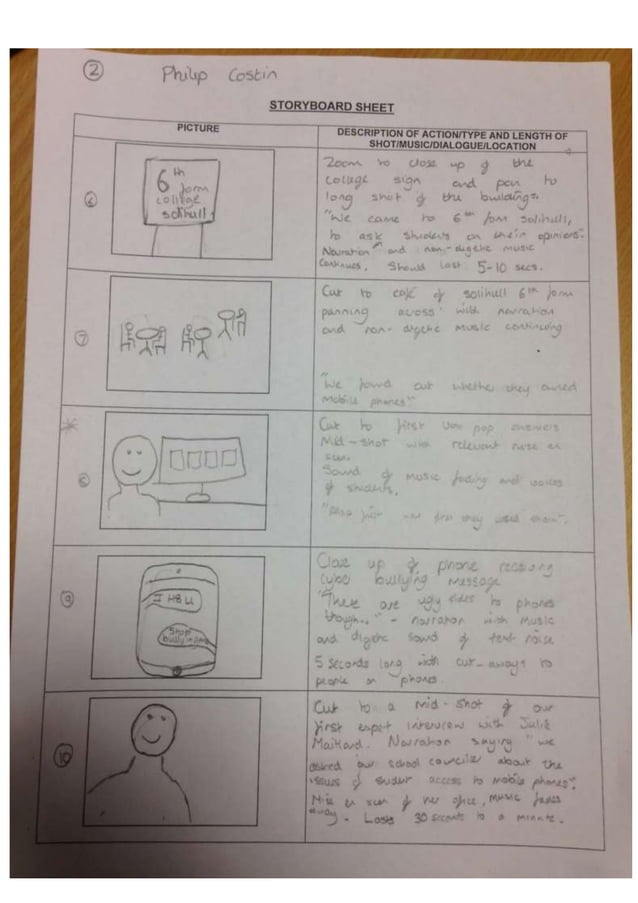 2 Philip Costin
STORYBOARD SHEET
PICTURE
DESCRIPTION OF ACTION/TYPE AND LENGTH OF
SHOT/MUSIC/DIALOGUE/LOCATION
6
6th
form
college
solihull
Zoom to close up of the
college sign and pan to
long shot of the buildings.
"We came to 6th form solihull,
to ask students on their opinions".
Narration and non-digetic music
continues. Should last 5-10 secs.
7
Cut to cafe of solihull 6th form
panning across with narration
and non-digetic music continuing
"We found out whether they owned
mobile phones"
8
Cut to first vox pop answers
Mid-shot with relevant mise en
scen.
Sound of music fading and voices
of students.
they used them".
9
I H8 U
Stop
bullying me
Close up of phone receiving
cyber bullying message
"There are ugly sides to phones
though..." - narration with music
and digetic sound of text noise
5 seconds long with cut-aways to
people on phones.
10
Cut to a mid-shot of our
first expert interview with Julie
Maitland. Narration saying "we
asked our school counciler about the
issues of student access to mobile phones".
Mise en scen of her office, music fades
away. Lasts 30 seconds to a minute.